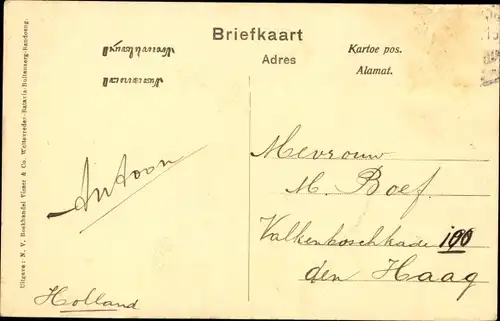 Briefkaart
Adres
Kartoe pos.
Alamat.
Uitgave: N. V. Boekhandel Visser & Co. Weltevreden-Batavia-Buitenzorg-Bandoeng.
Antoon
Holland
Mevrouw
M. Boef.
Valkenboschkade 190
den Haag